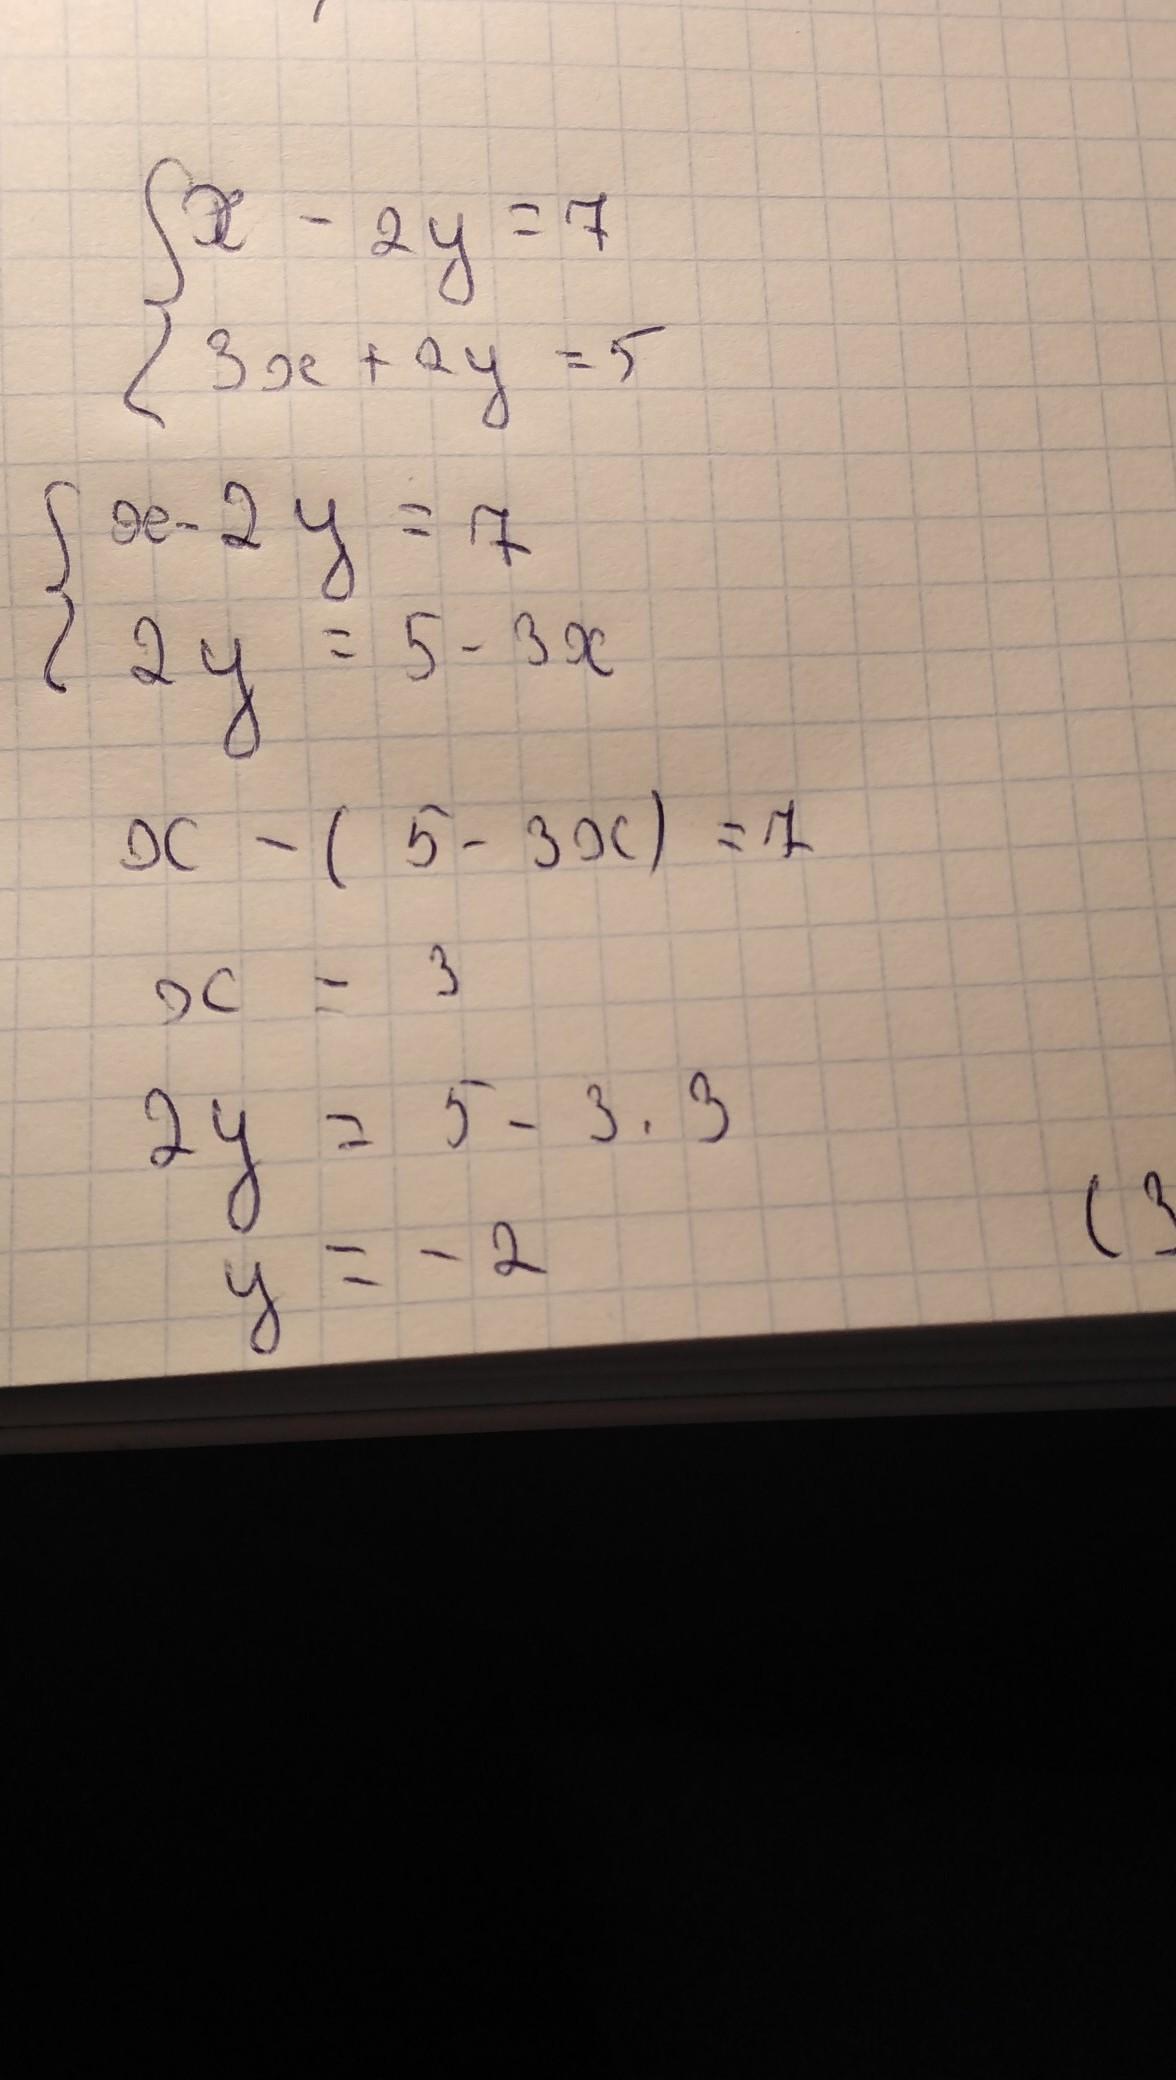 x - 2y = 7
3x + 2y = 5
x - 2y = 7
2y = 5 - 3x
x - (5 - 3x) = 7
x = 3
2y = 5 - 3 · 3
y = -2
(3